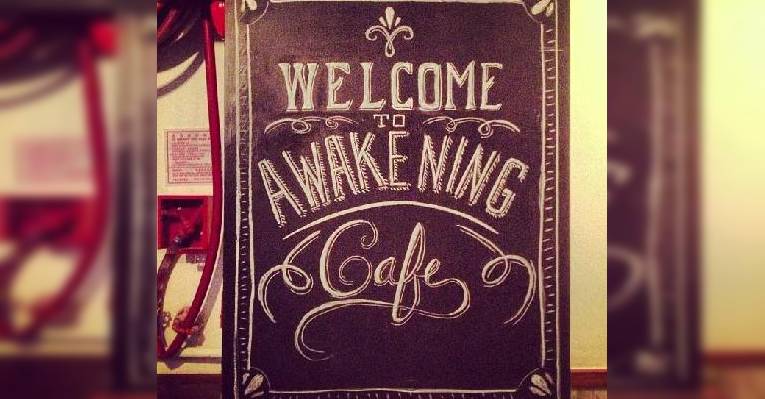 WELCOME
TO
AWAKENING
Cafe